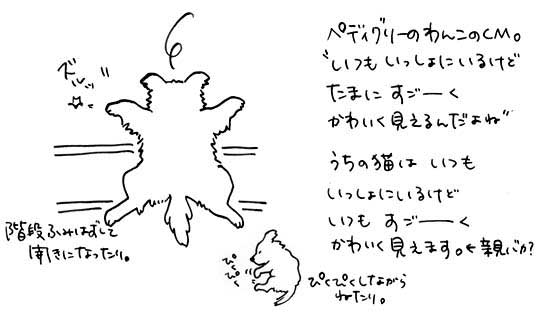 ペディグリーのわんこのCM。
"いつも いっしょにいるけど
たまに すごーーく
かわいく見えるんだよね"
うちの猫は いつも
いっしょにいるけど
いつも すごーーく
かわいく 見えます。←親バカ?
ズルッ"
階段ふみはずして
開きになったり。
ぴくぴく
ぴくぴくしながら
ねたり。